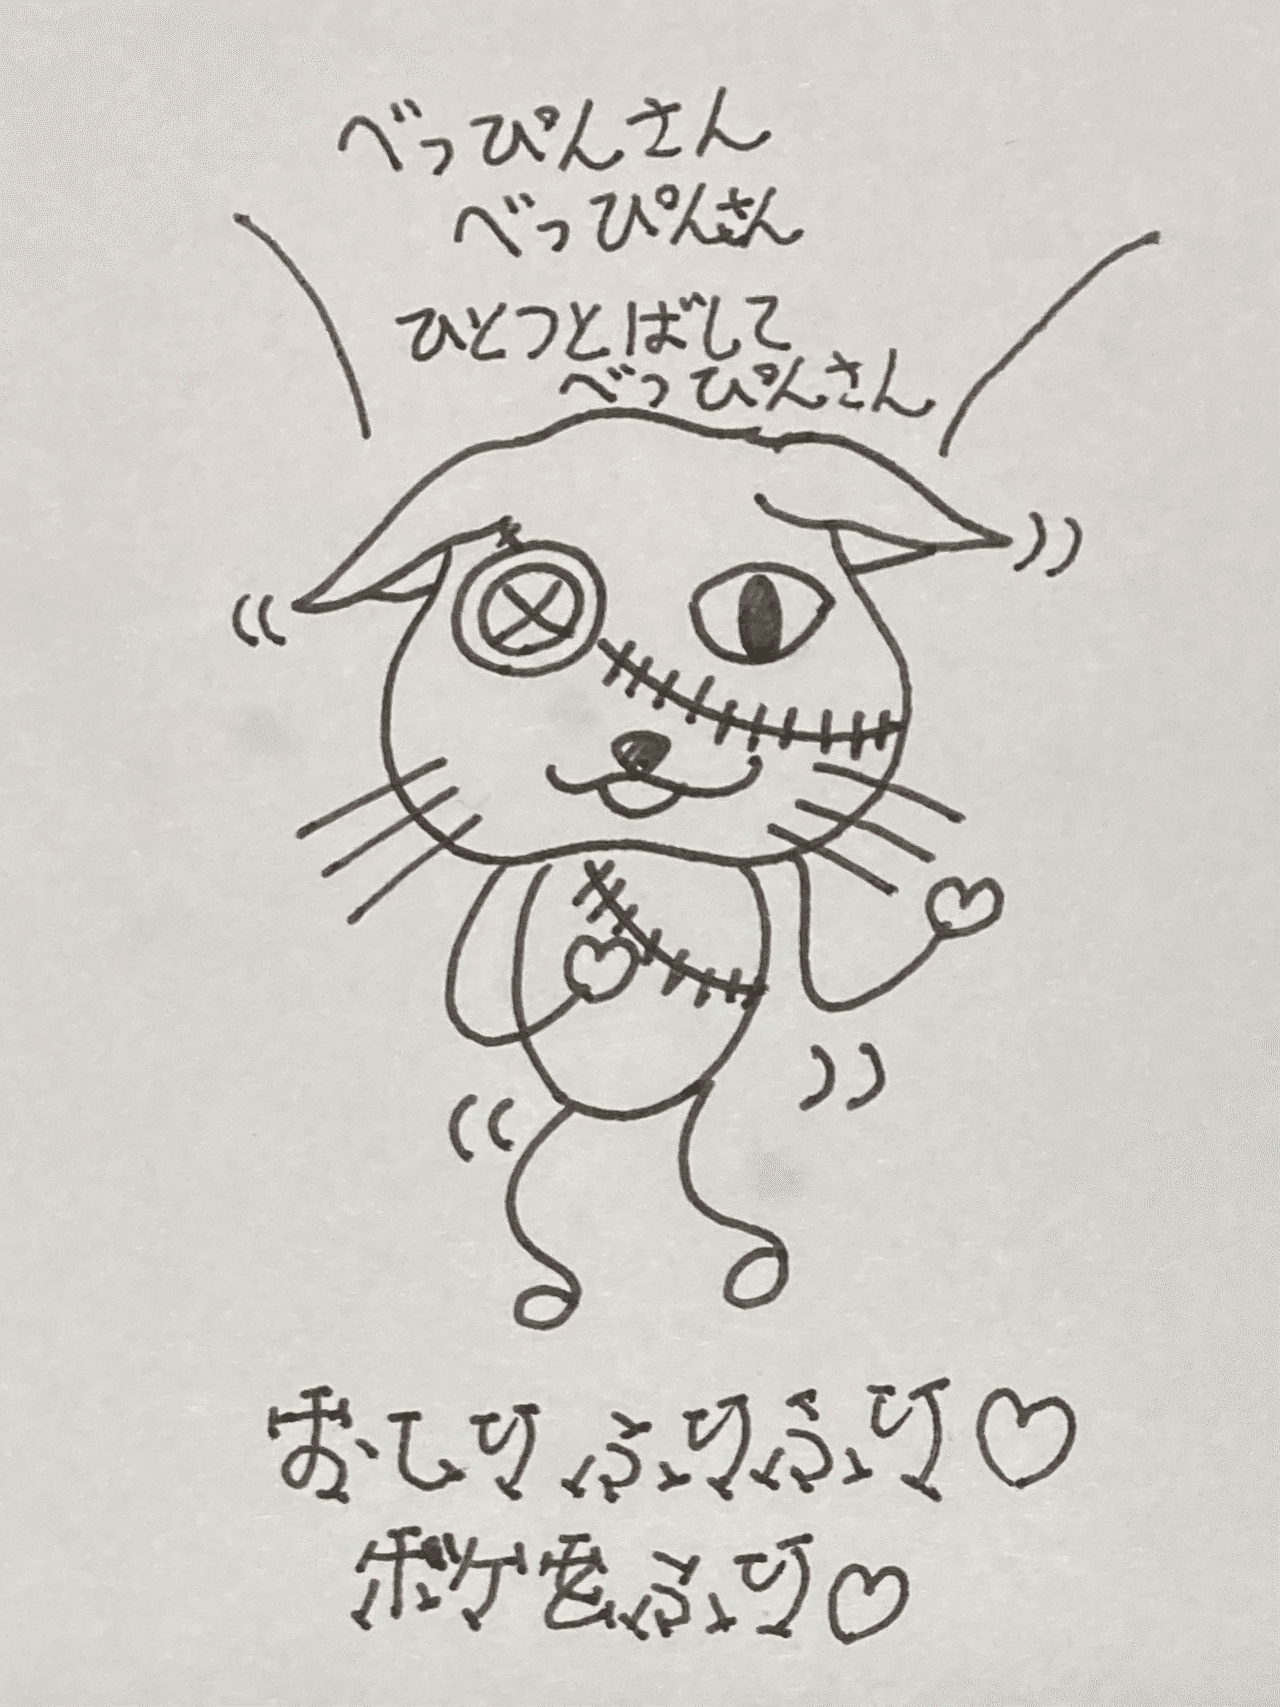 べっぴんさん
べっぴんさん
ひとつとばして
べっぴんさん
おしりふりふり♡
ボケをふり♡